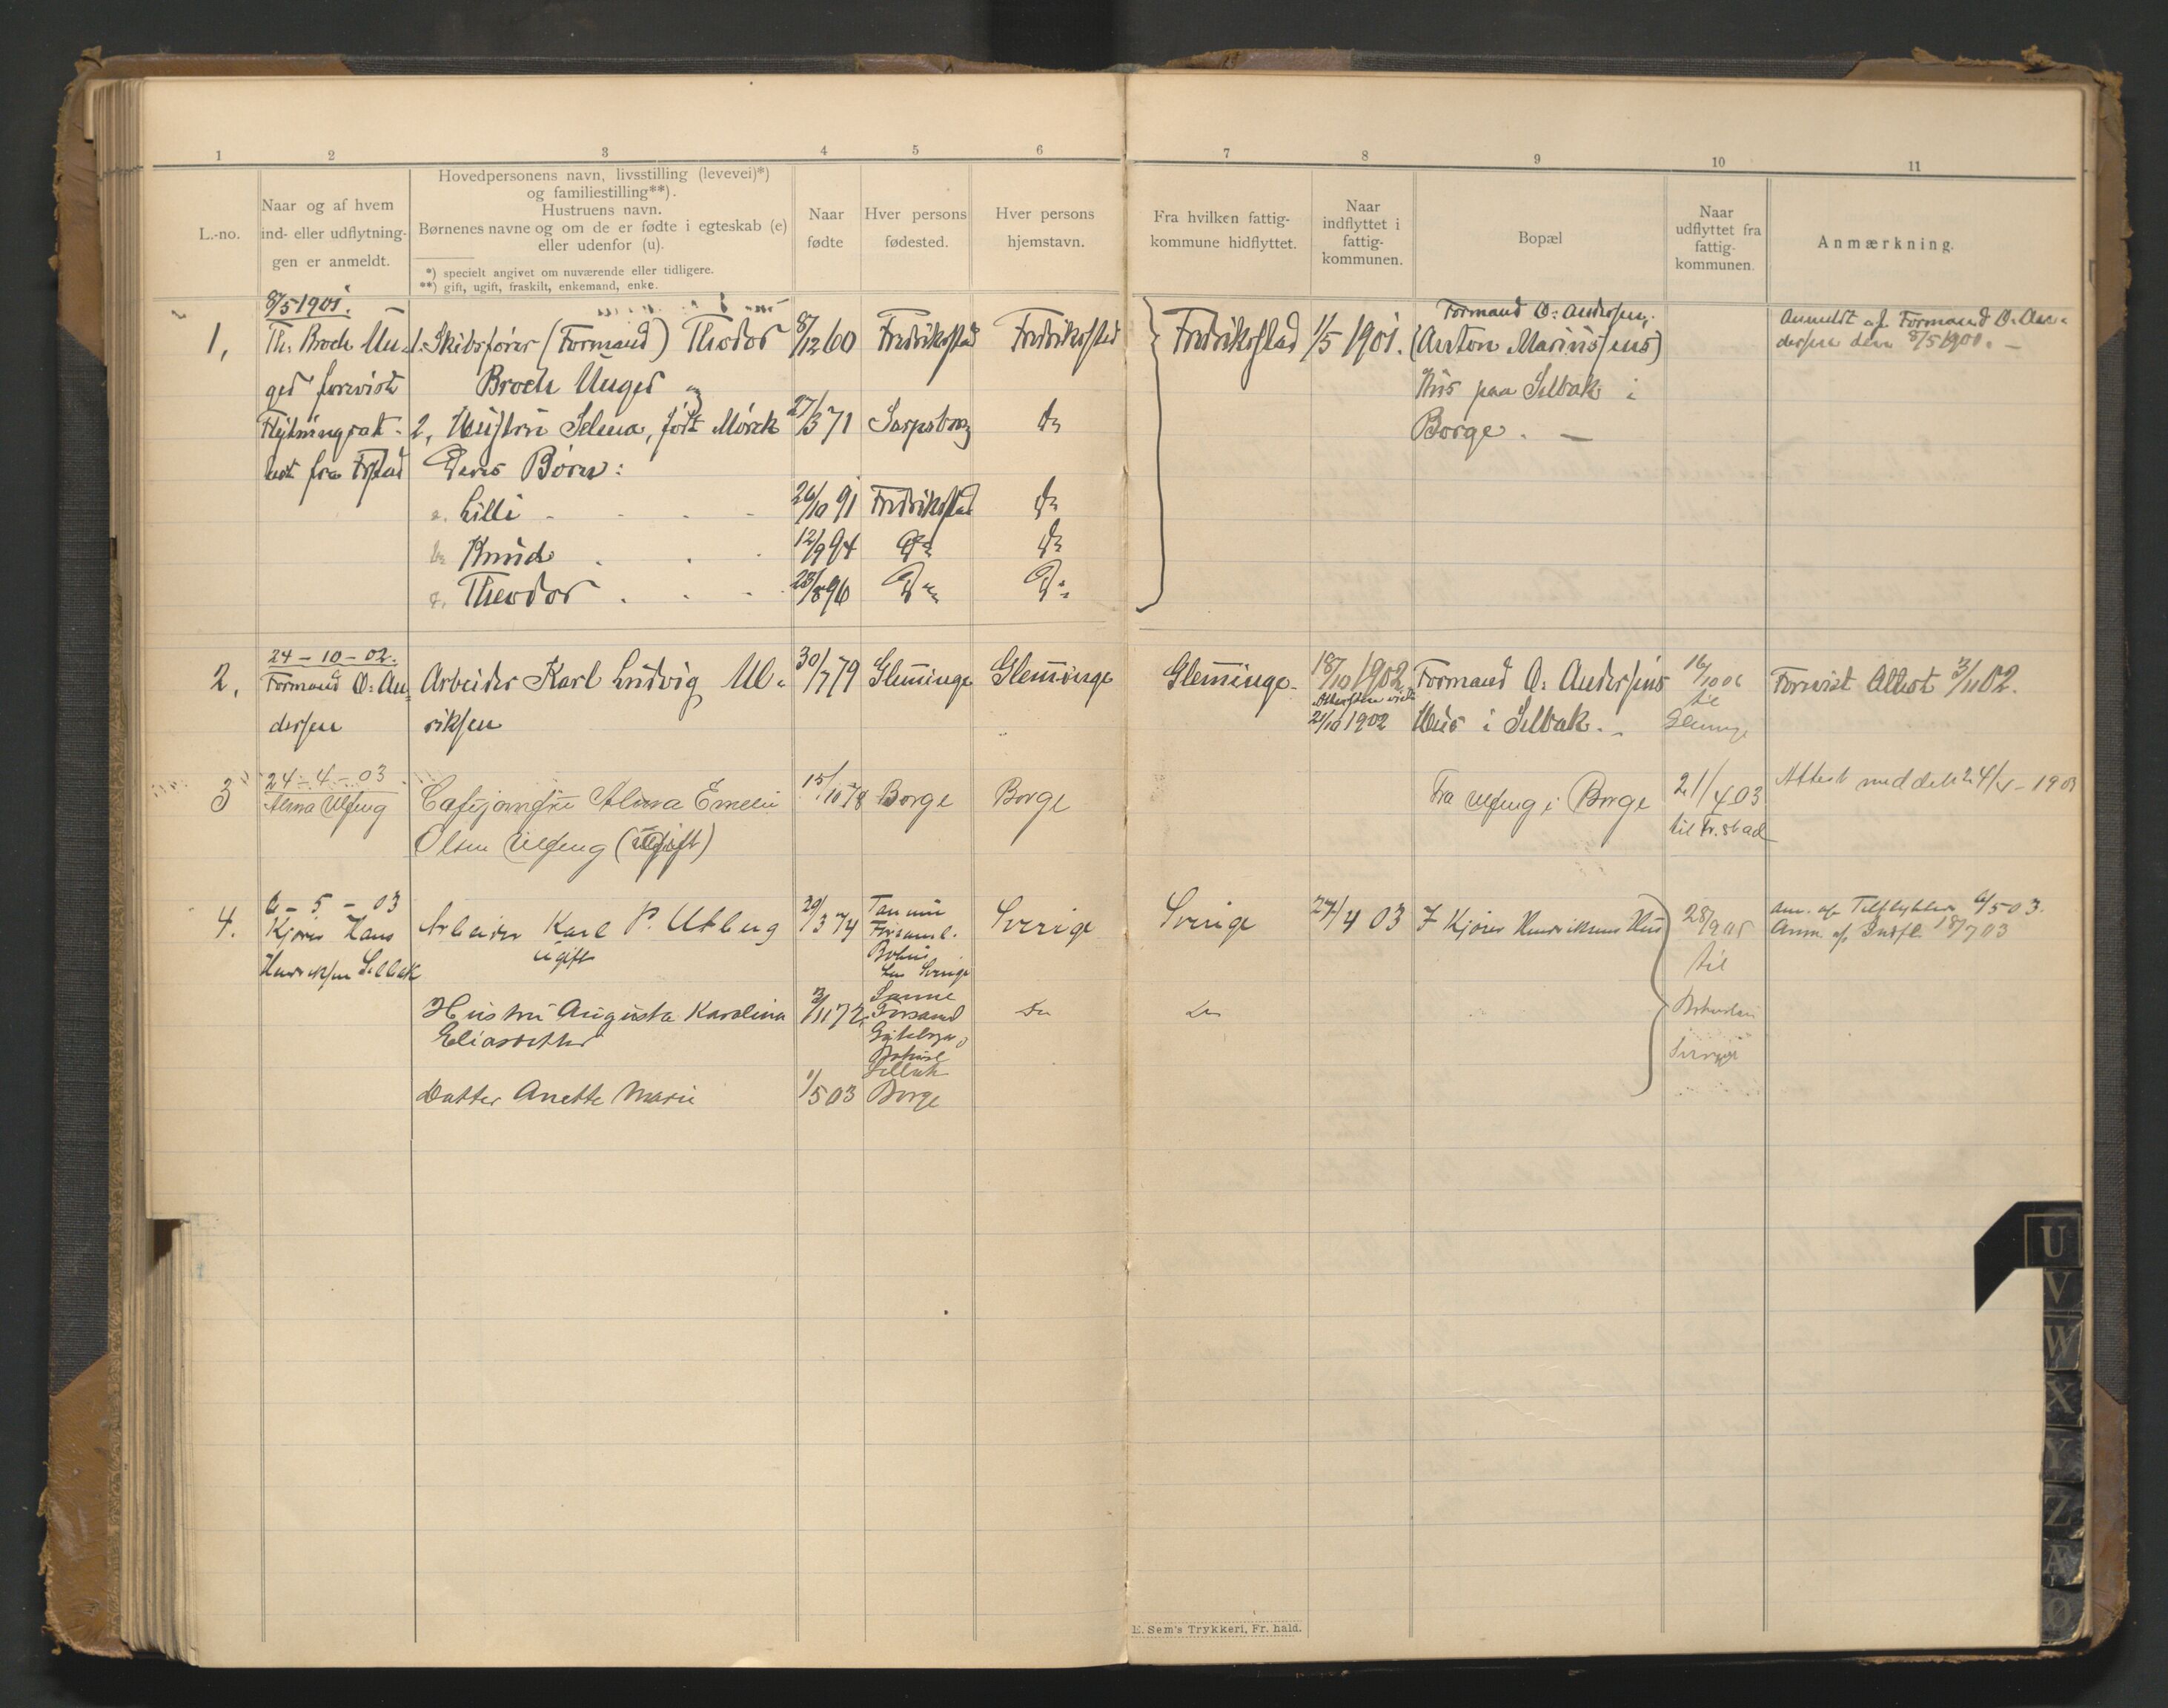 1 2 3 4 5 6 7 8 9 10 11
L.-no.
Naar og af hvem
ind- eller udflytnin-
gen er anmeldt.
Hovedpersonens navn, livsstilling (levevei)*)
og familiestilling**).
Hustruens navn.
Børnenes navne og om de er fødte i egteskab (e)
eller udenfor (u).
*) specielt angivet om nuværende eller tidligere.
**) gift, ugift, fraskilt, enkemand, enke.
Naar
fødte
Hver persons
fødested.
Hver persons
hjemstavn.
Fra hvilken fattig-
kommune hidflyttet.
Naar
indflyttet i
fattig-
kommunen.
Bopæl
Naar
udflyttet fra
fattig-
kommunen.
Anmærkning.
1,
8/5 1901.
Th. Broch Un-
ged forevist
Flytningsat-
test fra Frstad
1. Skibsfører (Formand) Theodor
Broch Unged
8/12 60 Fredrikstad Fredriksstad
2, Hustru Selma, født Mørck
27/3 71 Sarpsborg Do
Deres Børn:
a. Lilli 26/10 91 Fredrikstad Do
b. Knud 12/9 94 Do Do
c. Theodor 23/8 96 Do Do
Fredrikstad 1/5 1901.
Formand O. Andersen,
(Anton Marinissens)
Hus paa Selbak i
Borge. —
Anmeldt af Formand O. An-
dersen den 8/5 1901. —
2,
24-10-02.
Formand O. An-
dersen
Arbeider Karl Ludvig Ul-
riksen
30/7 79 Glemminge Glemminge
Glemminge. 18/10 1902
21/10 1902
Formand O. Andersens
Hus i Selbak.
16/10 06
til
Glemminge
Forevist Attest 3/11 02.
3
24-4-03
Alma Ulfeng
Cafejomfru Alma Emelie
Olsen Ulfeng (Ugift)
15/10 78 Borge Borge
Fra Ulfeng i Borge
21/4 03
til Fr.stad
Attest meddelt 24/4-1903
4.
6-5-03
Kjører Hans
Henriksen Selbak
Arbeider Karl P. Utberg
ugift
29/3 74
Tanum
Sverige
Sverige 27/4 03
I Kjører Henriksens Hus
28/9 05
til
Sverige
Anm. af Tilflytter 6/5 03.
Anm. af Indfl. 18/7 03
Hustru Augusta Karolina
Eliasdatter
3/11 72
Sanne
Do Do
Datter Anette Marie
1/5 03
Selbak
Borge
E. Sem's Trykkeri, Fr. hald.
U
V
W
X
Y
Z
Æ
Ø